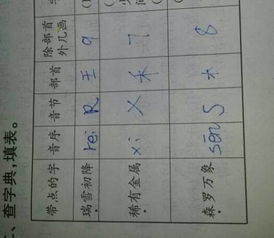 、查字典,填表。
带点的字 音序 音节 部首 除部首外几画
瑞雪初降 rei R 王 9
稀有金属 xi X 禾 7
森罗万象 sēn S 木 8